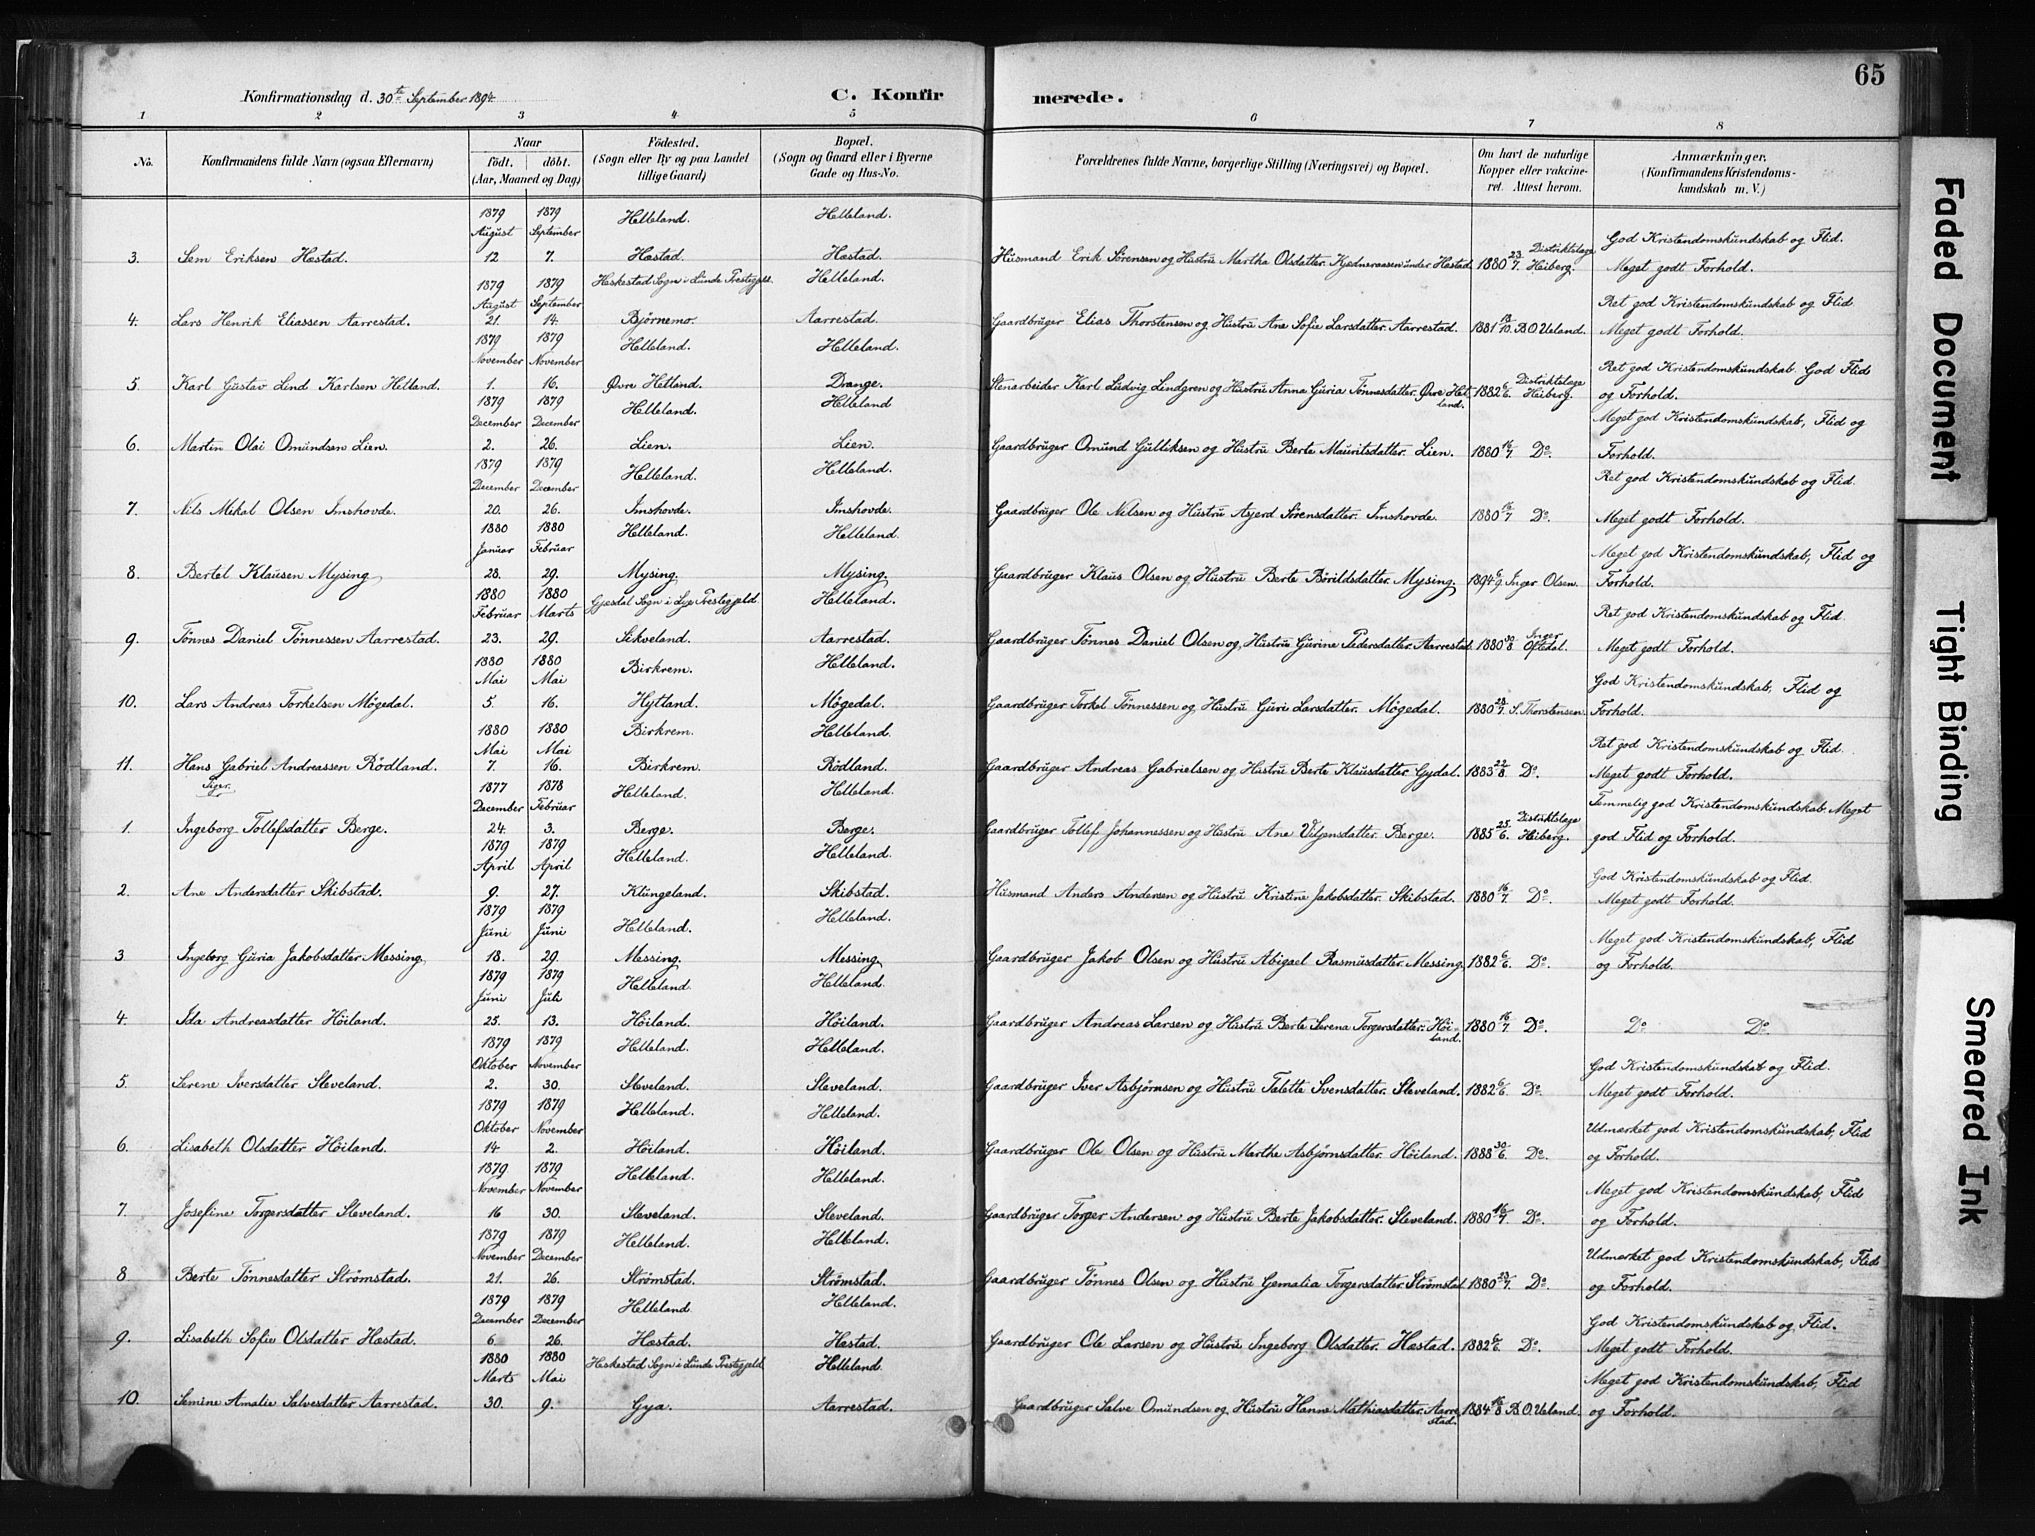 65
Konfirmationsdag d. 30te September 1894.
C. Konfirmerede.
1 2 3 4 5 6 7 8
No.
Konfirmandens fulde Navn (ogsaa Efternavn)
Naar
födt. döbt.
(Aar, Maaned og Dag)
Födested.
(Sogn eller By og paa Landet
tillige Gaard)
Bopæl.
(Sogn og Gaard eller i Byerne
Gade og Hus-No.
Forældrenes fulde Navne, borgerlige Stilling (Næringsvei) og Bopæl.
Om havt de naturlige
Kopper eller vakcine-
ret. Attest herom.
Anmærkninger.
(Konfirmandens Kristendoms-
kundskab m. V.)
1879 1879 Helleland. Helleland.
August September God Kristendomskundskab og Flid.
3. Sem Eriksen Hæstad. 12 7. Hæstad. Hæstad. Husmand Erik Sörensen og Hustru Martha Olsdatter. Kjödneraasen under Hæstad. 1880 23/7. Distriktslæge Heiberg. Meget godt Forhold.
1879 1879 Heskestad Sogn i Lunde Prestegjeld. Helleland.
August September Ret god Kristendomskundskab og Flid
4. Lars Henrik Eliassen Aarrestad. 21. 14. Björnemo. Aarrestad. Gaardbruger Elias Thorstensen og Hustru Ane Sofie Larsdatter. Aarrestad. 1881 18/10 B.O. Ueland. Meget godt Forhold.
1879 1879 Helleland. Helleland.
November November Ret god Kristendomskundskab. God Flid
5. Karl Gustav Lind Karlsen Hetland. 1. 16. Øvre Hetland. Drange. Stenarbeider Karl Ludvig Lindgren og Hustru Anna Guria Tønnesdatter. Øvre Hetland. 1882 6/6. Distriktslæge Heiberg. og Forhold.
1879 1879 Helleland. Helleland
December December Meget god Kristendomskundskab, Flid og
6. Martin Olai Omundsen Lien. 2. 26. Lien. Lien. Gaardbruger Omund Gulliksen og Hustru Berte Mauritsdatter. Lien. 1880 16/7 Do. Forhold.
1879 1879 Helleland. Helleland.
December December Ret god Kristendomskundskab og Flid.
7. Nils Mikal Olsen Imshovde. 20. 26. Imshovde. Imshovde. Gaardbruger Ole Nilsen og Hustru Asjerd Sörensdatter. Imshovde. 1880 16/7 Do. Meget godt Forhold.
1880 1880 Helleland. Helleland.
Januar Februar Meget god Kristendomskundskab, Flid og
8. Bertel Klausen Mysing 28. 29. Mysing. Mysing. Gaardbruger Klaus Olsen og Hustru Berte Börildsdatter. Mysing. 1894 6/9. Inger Olsen. Forhold.
1880 1880 Gjesdal Sogn i Lye Prestegjeld. Helleland.
Februar Marts Ret god Kristendomskundskab og Flid
9. Tönnes Daniel Tönnessen Aarrestad. 23. 29. Sekveland. Aarrestad. Gaardbruger Tönnes Daniel Olsen og Hustru Gurine Pedersdatter. Aarrestad. 1880 30/8. Inger Oftedal. Meget godt Forhold.
1880 1880 Birkrem. Helleland.
Mai Mai God Kristendomskundskab, Flid og
10. Lars Andreas Torkelsen Mögedal. 5. 16. Hytland. Mögedal. Gaardbruger Torkel Tönnessen og Hustru Guri Larsdatter. Mögedal. 1880 28/7. S. Thorstensen. Forhold.
1880 1880 Birkrem. Helleland.
Mai Mai Ret god Kristendomskundskab og Flid.
11. Hans Gabriel Andreassen Rödland. 7. 16. Birkrem. Rödland. Gaardbruger Andreas Gabrielsen og Hustru Berte Klausdatter. Gydal. 1883 22/8 Do. Meget godt Forhold.
Piger.
1877 1878 Helleland. Helleland.
December Februar Temmelig god Kristendomskundskab. Meget
1. Ingeborg Tollefsdatter Berge. 24. 3. Berge. Berge. Gaardbruger Tollef Johannessen og Hustru Ane Viljensdatter. Berge. 1885 25/6. Distriktslæge Heiberg. god Flid og Forhold.
1879 1879 Helleland. Helleland.
April April God Kristendomskundskab og Flid.
2. Ane Andersdatter Skibstad. 9. 27. Klungeland. Skibstad. Husmand Anders Andersen og Hustru Kristine Jakobsdatter. Skibstad. 1880 16/7. Do. Meget godt Forhold.
1879 1879 Helleland. Helleland.
Juni Juni Meget god Kristendomskundskab, Flid
3. Ingeborg Guria Jakobsdatter Messing. 18. 29. Messing. Messing. Gaardbruger Jakob Olsen og Hustru Abigael Rasmusdatter. Messing. 1882 6/6. Do. og Forhold.
1879 1879 Helleland. Helleland.
Juni Juli
4. Ida Andreasdatter Höiland. 25. 13. Höiland. Höiland. Gaardbruger Andreas Larsen og Hustru Berte Serena Torgersdatter. Höiland. 1880 16/7 Do. Do Do.
1879 1879 Helleland. Helleland.
Oktober November God Kristendomskundskab og Flid.
5. Serene Iversdatter Sleveland. 2. 30. Sleveland. Sleveland. Gaardbruger Iver Asbjörnsen og Hustru Telette Svensdatter. Sleveland. 1882 6/6. Do. Meget godt Forhold.
1879 1879 Helleland. Helleland.
Oktober November Udmærket god Kristendomskundskab, Flid
6. Lisabeth Olsdatter Höiland. 14 2. Höiland. Höiland. Gaardbruger Ole Olsen og Hustru Marthe Asbjörnsdatter. Höiland. 1888 30/6. Do. og Forhold.
1879 1879 Helleland. Helleland.
November November Meget god Kristendomskundskab, Flid
7. Josefine Torgersdatter Sleveland. 16 30. Sleveland. Sleveland. Gaardbruger Torger Andersen og Hustru Berte Jakobsdatter. Sleveland. 1880 16/7. Do. og Forhold.
1879 1879 Helleland. Helleland.
November December Udmærket god Kristendomskundskab, Flid
8 Berte Tönnesdatter Strömstad. 21. 26. Strömstad. Strömstad. Gaardbruger Tönnes Olsen og Hustru Gemalia Torgersdatter. Strömstad. 1880 23/7. Do. og Forhold.
1879 1879 Helleland. Helleland.
December December God Kristendomskundskab og Flid.
9. Lisabeth Sofie Olsdatter Hæstad. 6. 26. Hæstad. Hæstad. Gaardbruger Ole Larsen og Hustru Ingeborg Olsdatter. Hæstad. 1882 6/6. Do. Meget godt Forhold.
1880 1880 Heskestad Sogn i Lunde Prestegjeld. Helleland.
Marts Mai Meget god Kristendomskundskab, Flid
10. Semine Amalie Salvesdatter Aarrestad. 30. 9. Gya. Aarrestad. Gaardbruger Salve Omundsen og Hustru Hanne Mathiasdatter. Aarrestad. 1884 B.O. Ueland. og Forhold.
Faded Document
Tight Binding
Smeared Ink